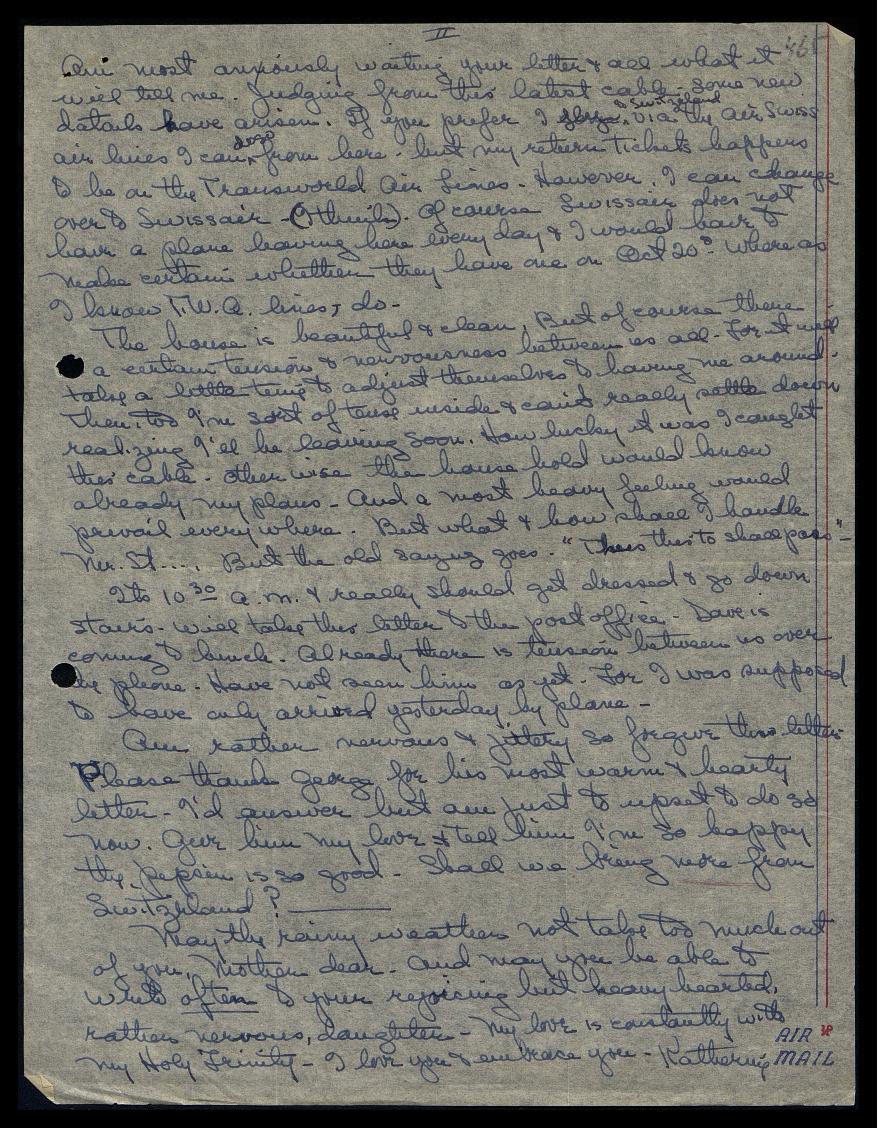 II
Am most anxiously waiting your letter & all what it
will tell me. Judging from this latest cable - some new
details have arisen. If you prefer I via the Air Swiss
to Switzerland
air lines I can, from here - but my return tickets happens
also
to be on the Transworld Air Lines - However, I can change
over to Swissair - (I think). Of course Swissair does not
have a plane leaving here every day & I would have to
make certain whether they have one on Oct 20th. Where as
I know T.W.A. lines, do -
The house is beautiful & clean. But of course there
a certain tension & nervousness between us all - For it will
take a little time to adjust themselves to having me around.
then, too I'm sort of tense inside & can't really settle down
realizing I'll be leaving soon. How lucky it was I caught
this cable - other wise the house hold would know
already my plans - And a most heavy feeling would
prevail every where. But what & how shall I handle
Mr. St.... But the old saying goes - "this to shall pass" -
Its 10 30 a.m. & really should get dressed & go down
stairs - will take this letter to the post office - Dave is
coming to lunch. Already there is tension between us over
the phone - Have not seen him as yet - For I was supposed
to have only arrived yesterday by plane -
Am rather nervous & jittery so forgive this letter
Please thank George for his most warm & hearty
letter - I'd answer but am just to upset to do so
now. Give him my love & tell him I'm so happy
the pepsin is so good - Shall we bring more from
Switzerland?
May the rainy weather not take too much out
of you, Mother dear - And may you be able to
write often to your rejoicing but heavy hearted,
rather nervous, daughter - My love is constantly with
my Holy Trinity - I love you & embrace you - Katherine
AIR
MAIL